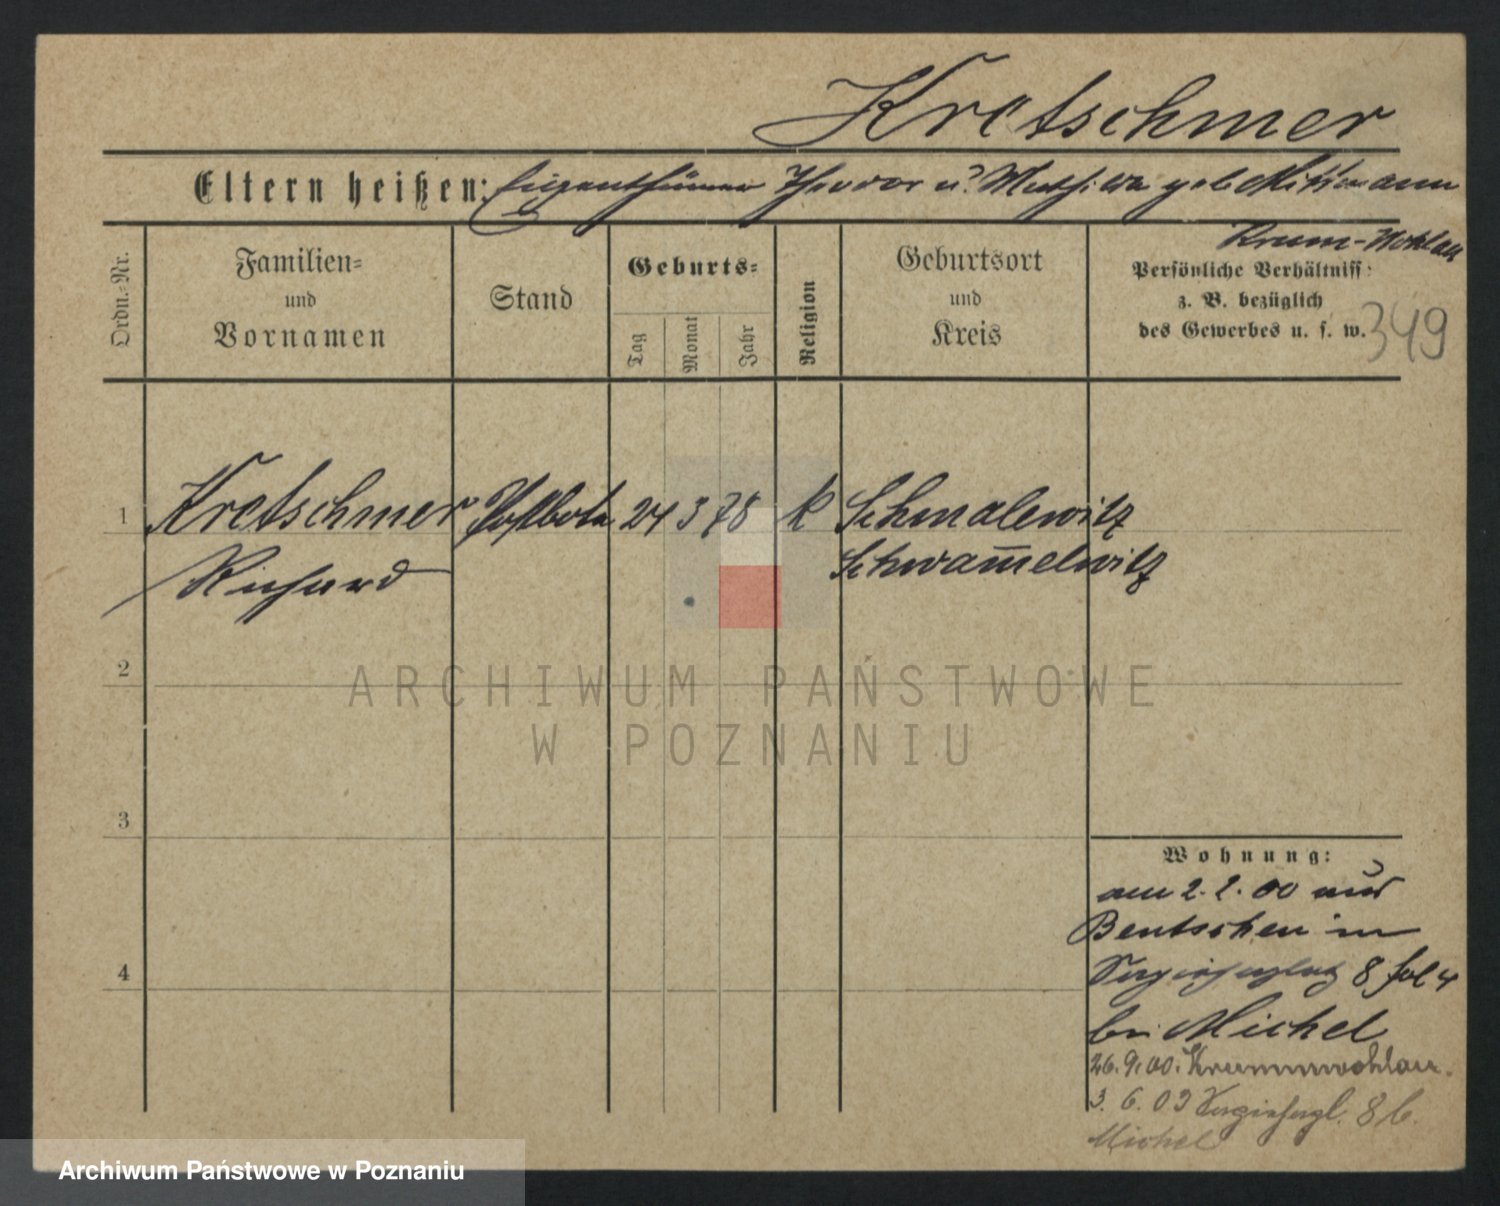 Kretschmer
Eltern heißen: Eigenthümer Theodor u. Mathilde geb. Mittmann
Krum-Wohlau
Ordn.-Nr.
Familien-
und
Vornamen
Stand
Geburts-
Tag
Monat
Jahr
Religion
Geburtsort
und
Kreis
Persönliche Verhältniss:
z. B. bezüglich
des Gewerbes u. s. w.
349
1 Kretschmer Postbote 24 3 78 k Schmalewitz
Richard Schwam̅elwitz
2
3
4
Wohnung:
am 2. 2. 00 aus
Bentschen in
8 Hol 4
bei Michel
26. 9. 00. Krummwohlau.
3. 6. 03 8 b.
Michel
ARCHIWUM PAŃSTWOWE
W POZNANIU
Archiwum Państwowe w Poznaniu